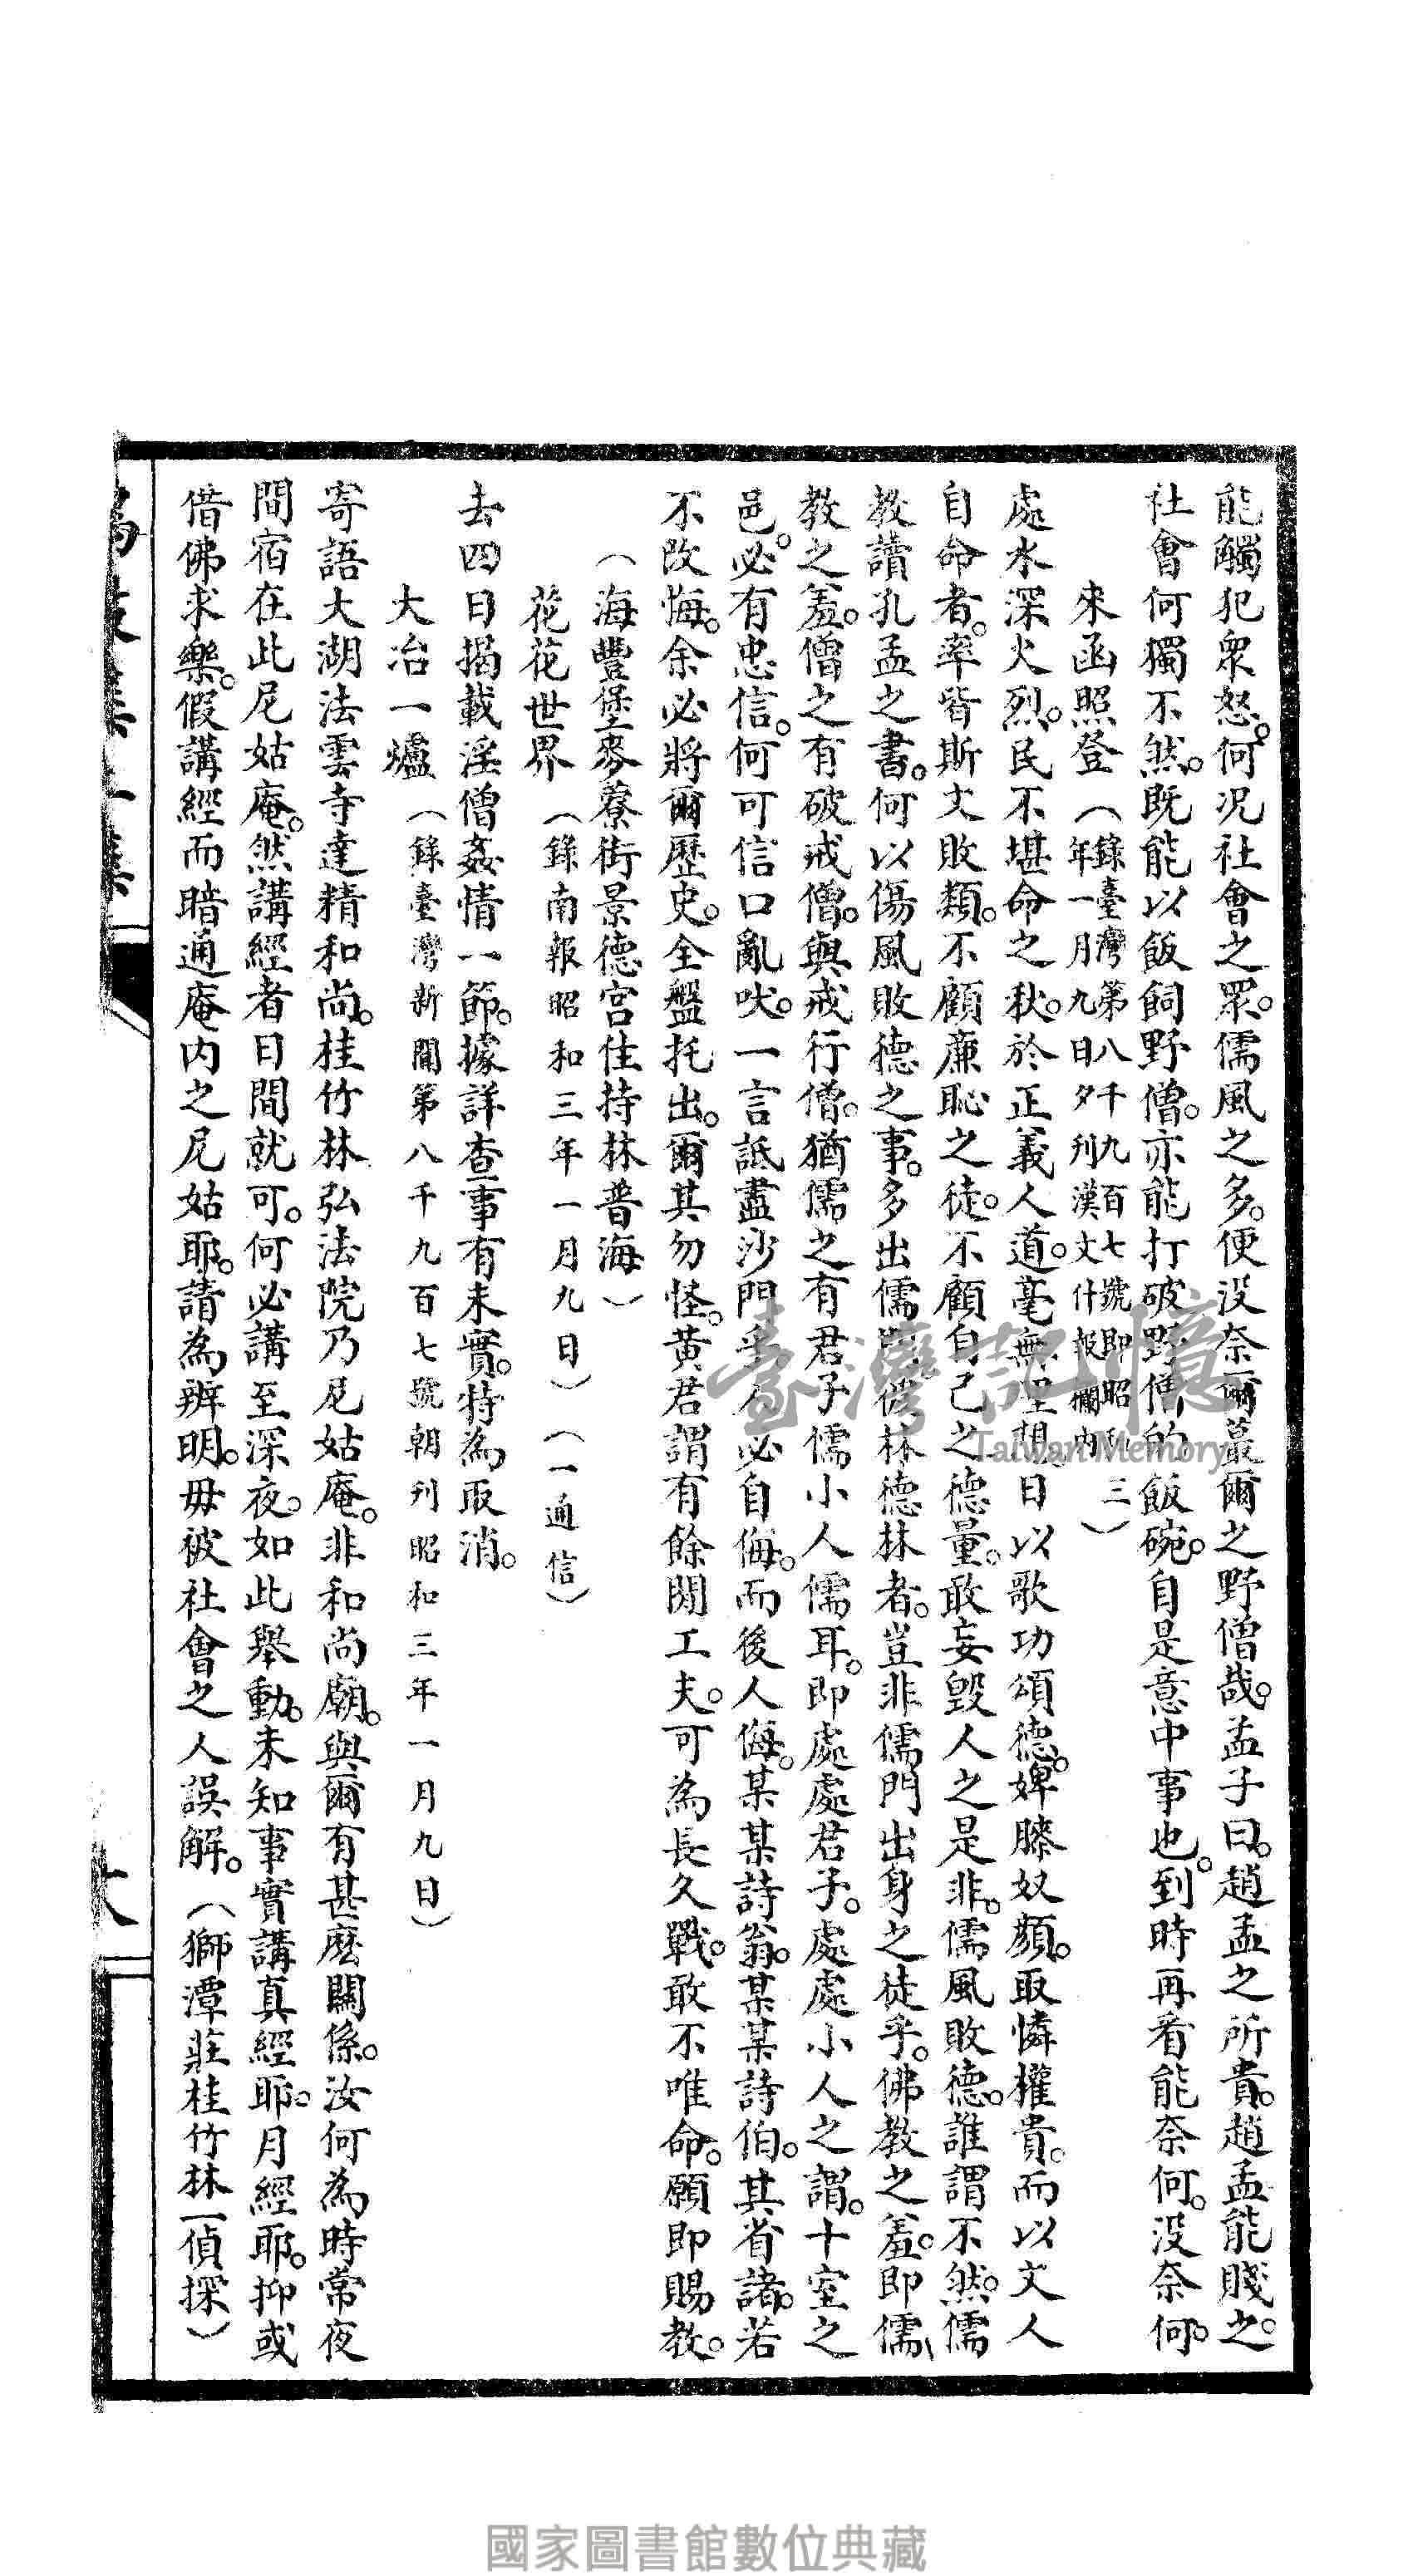 能觸犯眾怒。何況社會之眾。儒風之多。便沒奈爾蕞爾之野僧哉。孟子曰。趙孟之所貴。趙孟能賤之。
社會何獨不然。既能以飯飼野僧。亦能打破野僧的飯碗。自是意中事也。到時再看能奈何。沒奈何。
來函照登（錄臺灣第八千九百七號即昭和三
年一月九日夕刊漢文什報欄內）
處水深火烈。民不堪命之秋。於正義人道。毫無理想。日以歌功頌德。婢膝奴顏。取憐權貴。而以文人
自命者。率皆斯文敗類。不顧廉恥之徒。不顧自己之德量。敢妄毀人之是非。儒風敗德。誰謂不然。儒
教讀孔孟之書。何以傷風敗德之事。多出儒門。彼林德林者。豈非儒門出身之徒乎。佛教之羞。即儒
教之羞。僧之有破戒僧。與戒行僧。猶儒之有君子儒小人儒耳。即處處君子。處處小人之謂。十室之
邑。必有忠信。何可信口亂吠。一言詆盡沙門乎。人必自侮。而後人侮。某某詩翁。某某詩伯。其省諸。若
不改悔。余必將爾歷史。全盤托出。爾其勿怪。黃君謂有餘閒工夫。可為長久戰。敢不唯命。願即賜教。
（海豐堡麥藔街景德宮住持林普海）
花花世界（錄南報昭和三年一月九日）（一通信）
去四日揭載淫僧姦情一節。據詳查事有未實。特為取消。
大冶一爐（錄臺灣新聞第八千九百七號朝刊昭和三年一月九日）
寄語大湖法雲寺達精和尚。桂竹林弘法院乃尼姑庵。非和尚廟。與爾有甚麼關係。汝何為時常夜
間宿在此尼姑庵。然講經者日間就可。何必講至深夜。如此舉動。未知事實講真經耶。月經耶。抑或
借佛求樂。假講經而暗通庵內之尼姑耶。請為辨明。毋被社會之人誤解。（獅潭莊桂竹林一偵探）
臺灣記憶
Taiwan Memory
國家圖書館數位典藏